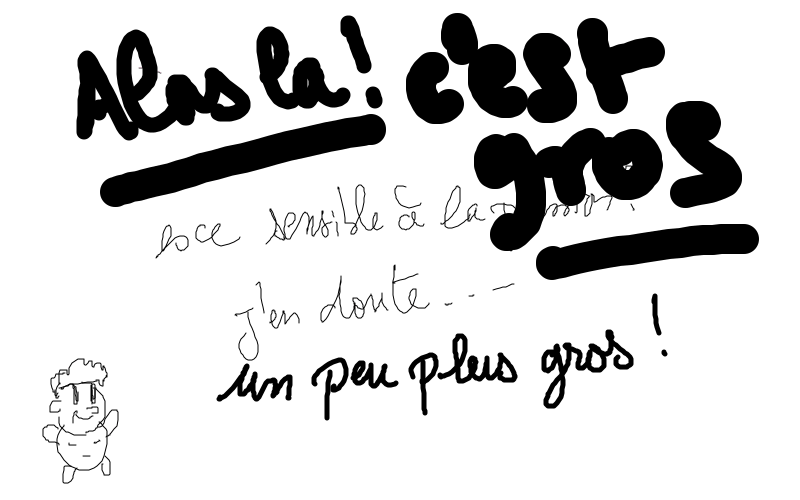 Alas la! c'est
gros
esce sensible à la
j'en doute...
un peu plus gros !